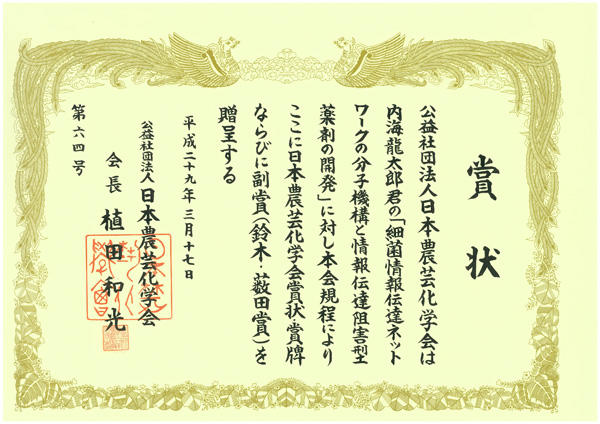 賞状
公益社団法人日本農芸化学会は
内海龍太郎君の「細菌情報伝達ネット
ワークの分子機構と情報伝達阻害型
薬剤の開発」に対し本会規程により
ここに日本農芸化学会賞状・賞牌
ならびに副賞(鈴木・薮田賞)を
贈呈する
平成二十九年三月十七日
公益社団法人日本農芸化学会
会長 植田和光
第六四号